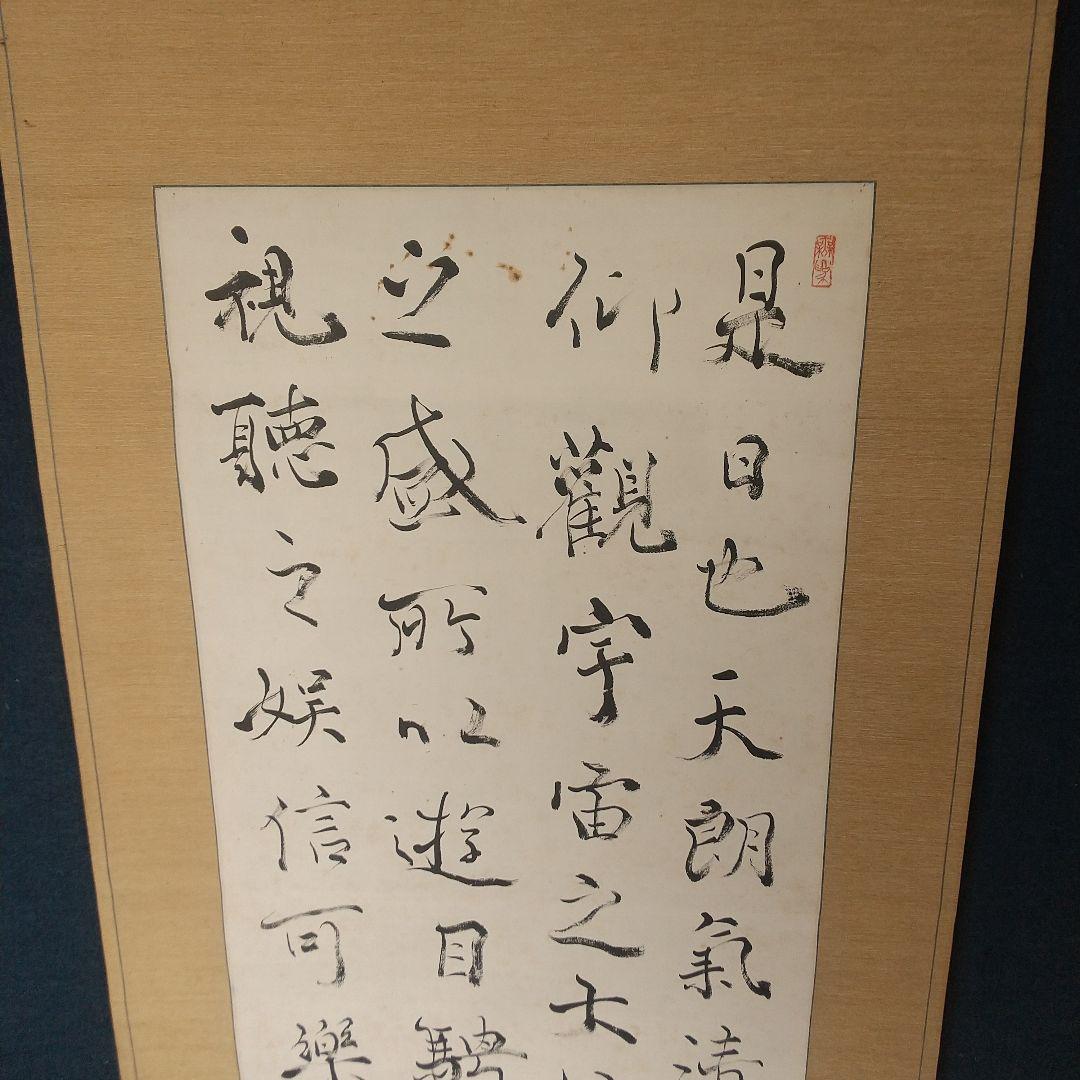 是日也天朗氣清
仰觀宇宙之大
之盛所以遊目騁
視聽之娛信可樂